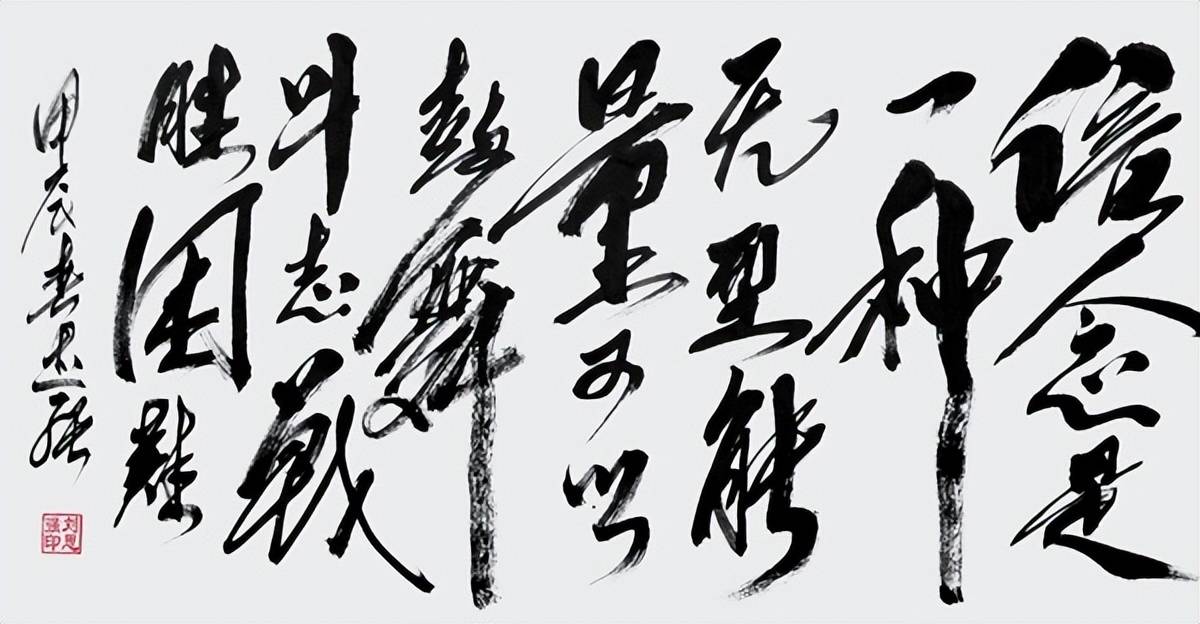 信念是
一种
无型能
量可以
鼓舞
斗志战
胜困难
甲辰春思强
刘思强印